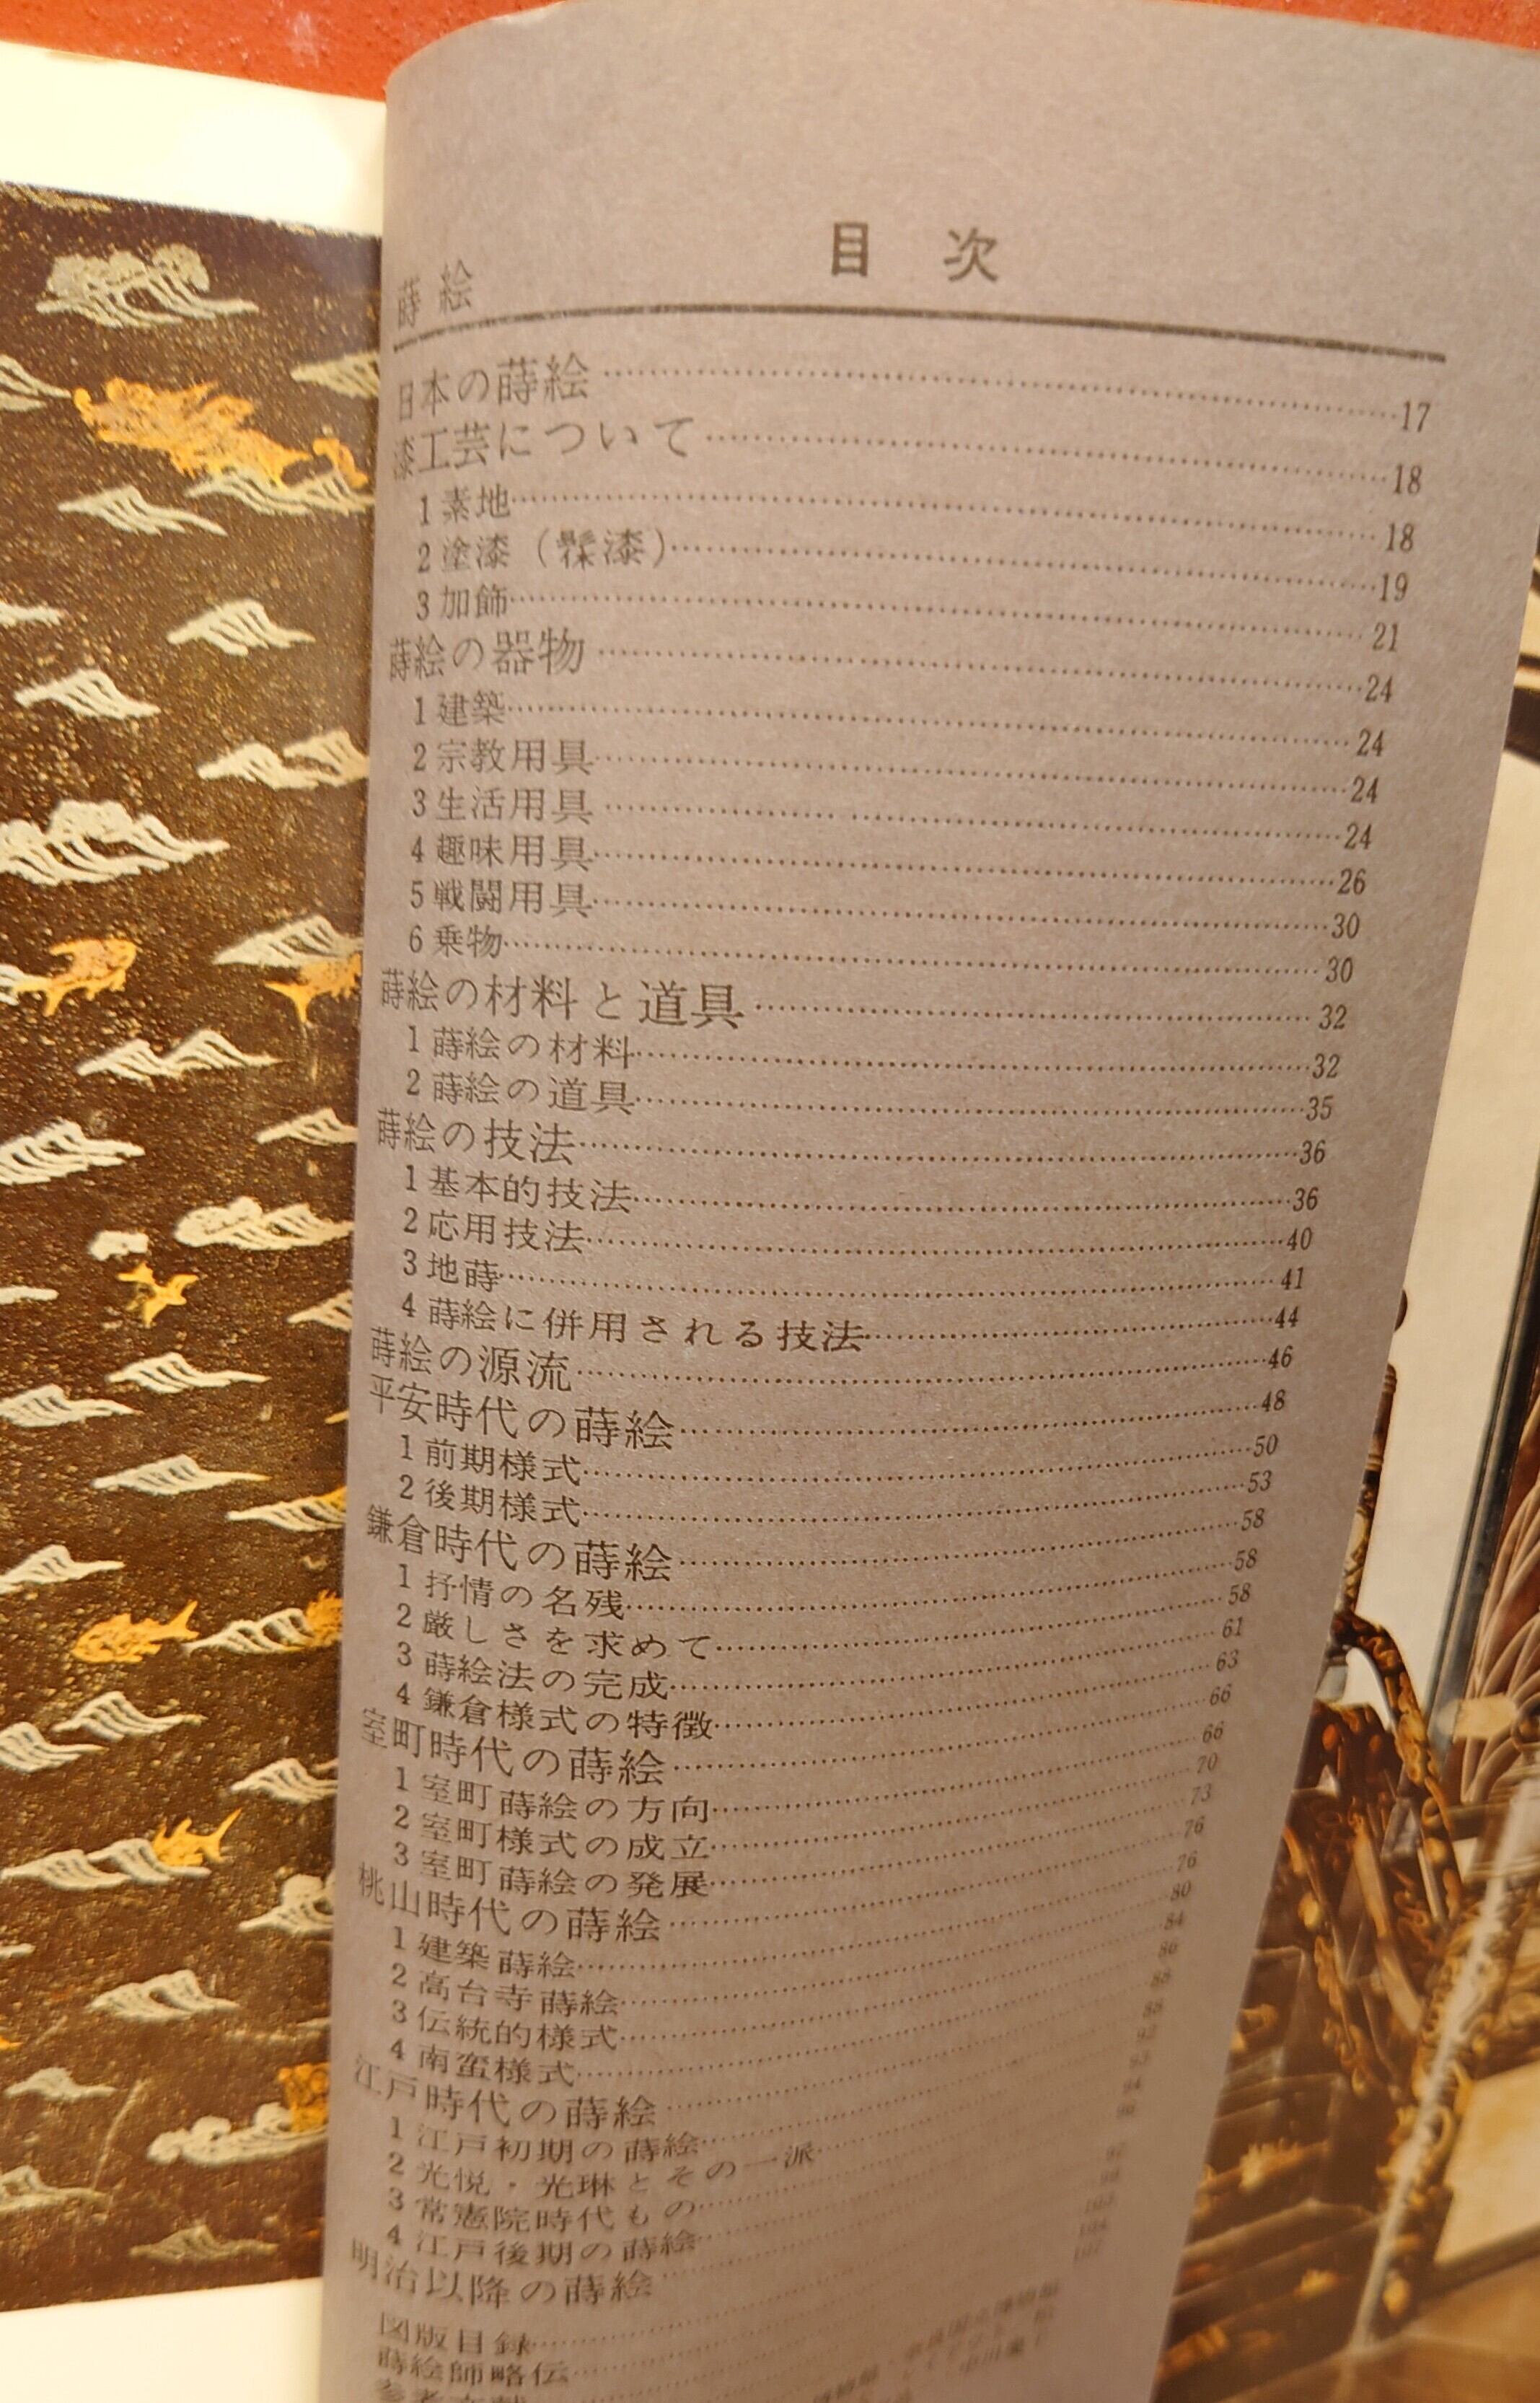 目次
蒔絵
日本の蒔絵……17
漆工芸について……18
1 素地……18
2 塗漆（髹漆）……19
3 加飾……21
蒔絵の器物……24
1 建築……24
2 宗教用具……24
3 生活用具……24
4 趣味用具……26
5 戦闘用具……30
6 乗物……30
蒔絵の材料と道具……32
1 蒔絵の材料……32
2 蒔絵の道具……35
蒔絵の技法……36
1 基本的技法……36
2 応用技法……40
3 地蒔……41
4 蒔絵に併用される技法……44
蒔絵の源流……46
平安時代の蒔絵……48
1 前期様式……50
2 後期様式……53
鎌倉時代の蒔絵……58
1 抒情の名残……58
2 厳しさを求めて……58
3 蒔絵法の完成……61
4 鎌倉様式の特徴……63
室町時代の蒔絵……66
1 室町蒔絵の方向……66
2 室町様式の成立……70
3 室町蒔絵の発展……73
桃山時代の蒔絵……76
1 建築蒔絵……76
2 高台寺蒔絵……80
3 伝統的様式……84
4 南蛮様式……86
江戸時代の蒔絵……88
1 江戸初期の蒔絵……88
2 光悦・光琳とその一派……92
3 常憲院時代もの……93
4 江戸後期の蒔絵……94
明治以降の蒔絵……
図版目録……
蒔絵師略伝……
参考文献